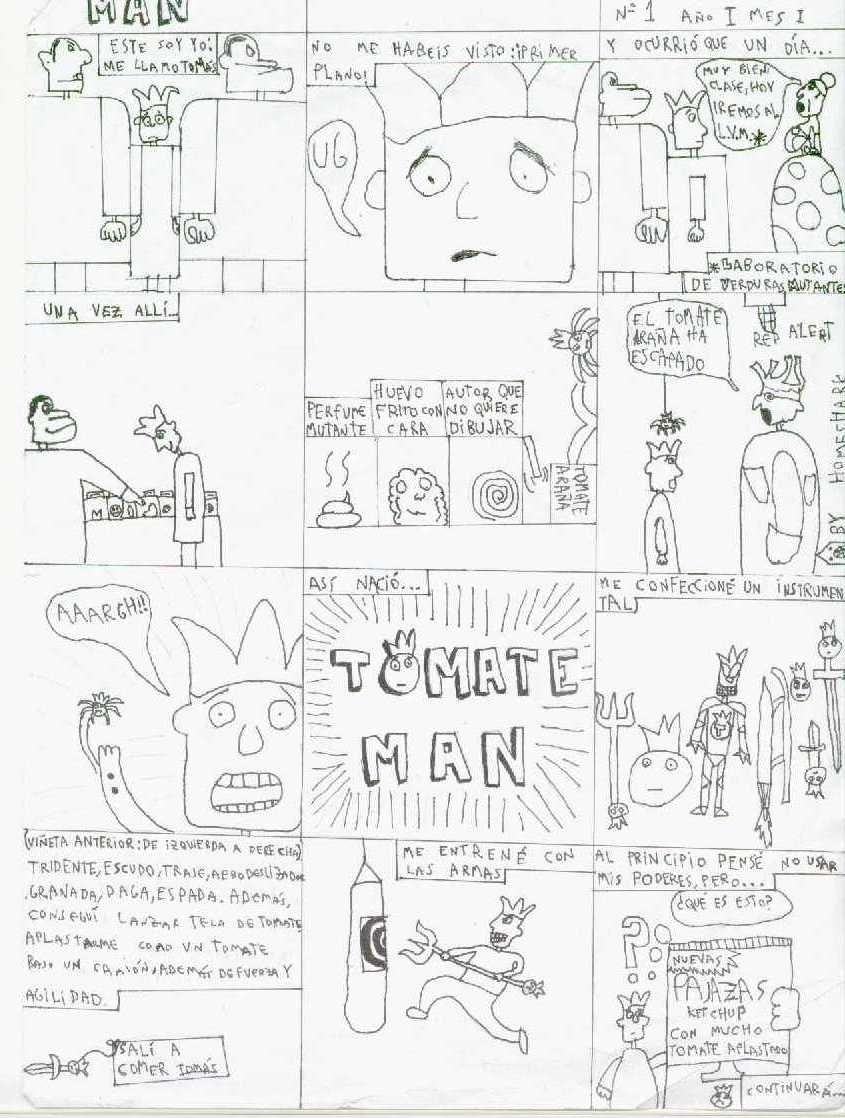 MAN
Nº 1 AÑO I MES I
ESTE SOY YO:
ME LLAMO TOMÁS
NO ME HABEIS VISTO: ¡PRIMER
PLANO!
UG
Y OCURRIÓ QUE UN DÍA...
MUY BIEN
CLASE, HOY
IREMOS AL
L.V.M.*
*LABORATORIO
DE VERDURAS MUTANTES
UNA VEZ ALLÍ...
M
PERFUME
MUTANTE
HUEVO
FRITO CON
CARA
AUTOR QUE
NO QUIERE
DIBUJAR
TOMATE
ARAÑA
EL TOMATE
ARAÑA HA
ESCAPADO
RED ALERT
BY HOMECHARK
AAARGH!!
ASÍ NACIÓ...
TOMATE
MAN
ME CONFECCIONÉ UN INSTRUMEN
TAL
T
(VIÑETA ANTERIOR: DE IZQUIERDA A DERECHA)
TRIDENTE, ESCUDO, TRAJE, AERODESLIZADOR
,GRANADA, DAGA, ESPADA. ADEMÁS,
CONSEGUÍ LANZAR TELA DE TOMATE
APLASTARME COMO UN TOMATE
BAJO UN CAMIÓN, ADEMÁS DE FUERZA Y
AGILIDAD.
SALÍ A
COMER TOMÁS
ME ENTRENÉ CON
LAS ARMAS
AL PRINCIPIO PENSÉ NO USAR
MIS PODERES, PERO...
¿QUÉ ES ESTO?
?
NUEVAS
PAJAZAS
KETCHUP
CON MUCHO
TOMATE APLASTADO
CONTINUARÁ...